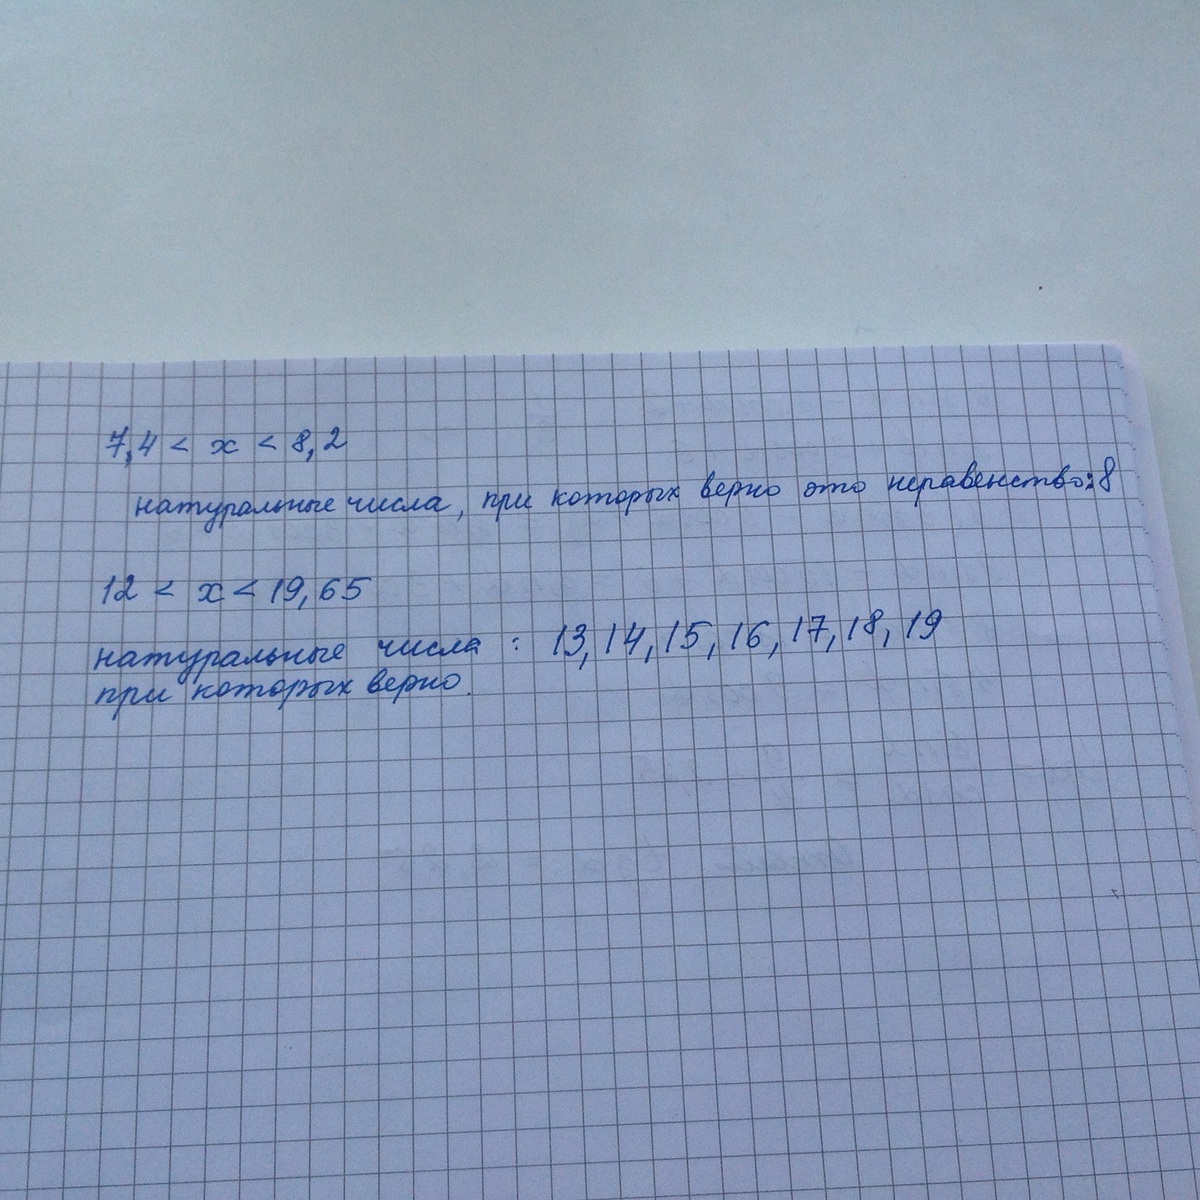 7,4 < x < 8,2
натуральные числа, при которых верно это неравенство: 8
12 < x < 19,65
натуральные числа : 13, 14, 15, 16, 17, 18, 19
при которых верно.